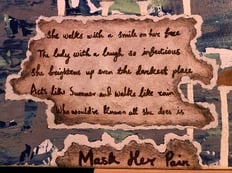 She walks with a smile on her face
The lady with a laugh so infectious
She brightens up even the darkest place
Acts like Summer and walks like rain
Who would've known all she does is
Mask Her Pain